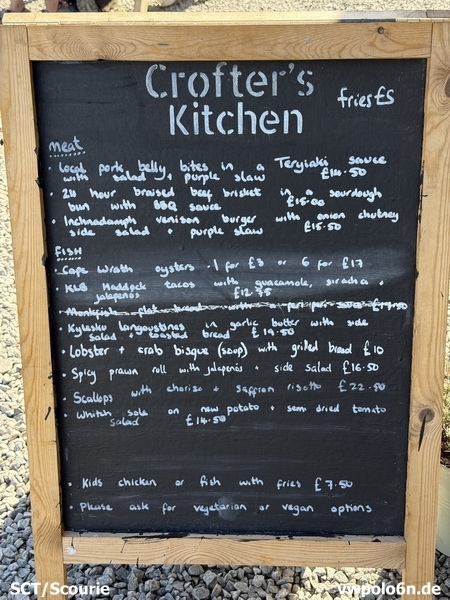 Crofter's
Kitchen
fries £5
meat
• Local pork belly bites in a Teryiaki sauce
with salad + purple slaw £14.50
• 24 hour braised beef brisket in a sourdough
bun with BBQ sauce £15.00
• Inchnadamph venison burger with onion chutney
side salad + purple slaw £15.50
FISH
• Cape Wrath oysters . 1 for £3 or 6 for £17
• KLB Haddock tacos with guacamole, siracha +
jalapenos £12.75
• Monkfish flat bread with peri peri sauce £17.50
• Kylesku langoustines in garlic butter with side
salad + toasted bread £19.50
• Lobster + crab bisque (soup) with grilled bread £10
• Spicy prawn roll with jalapenos + side salad £16.50
• Scallops with chorizo + saffron risotto £22.50
• Whitch sole on new potato + semi dried tomato
salad £14.50
• Kids chicken or fish with fries £7.50
• Please ask for vegetarian or vegan options
SCT/Scourie
vwpolo6n.de